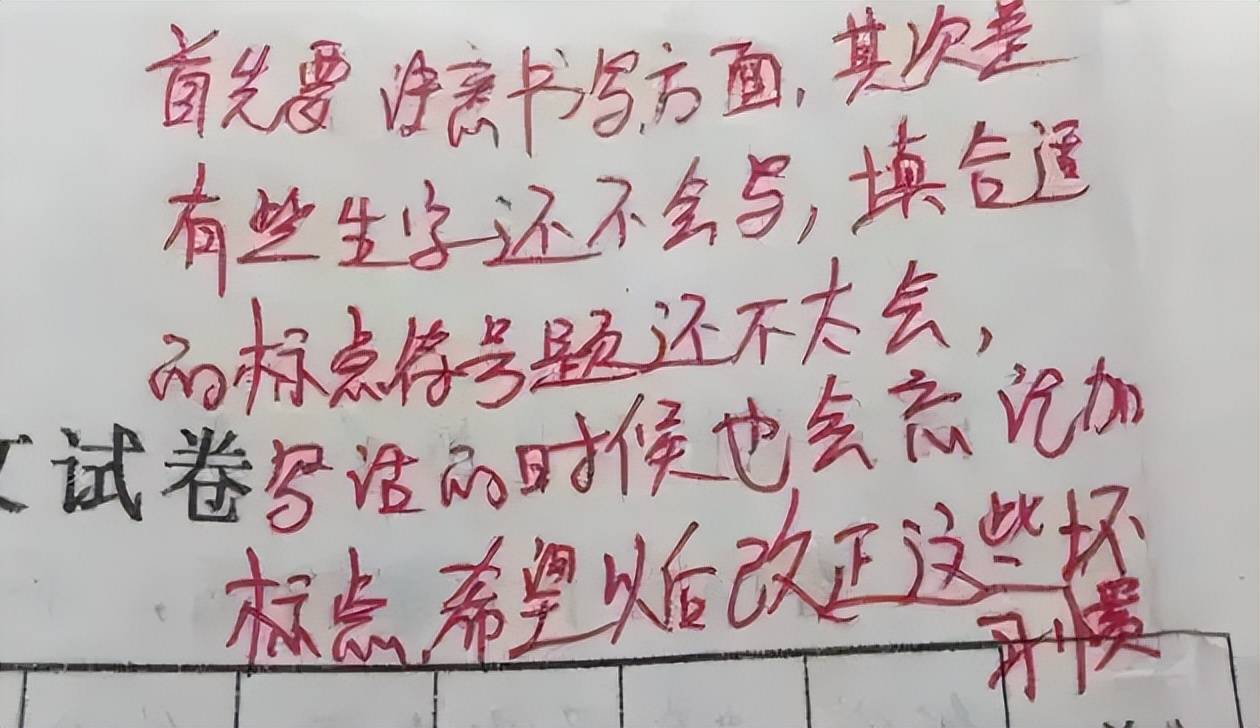 首先要注意书写方面,其次是
有些生字还不会写,填合适
的标点符号题还不太会,
写话的时候也会忘记加
标点,希望以后改正这些坏
习惯
试卷